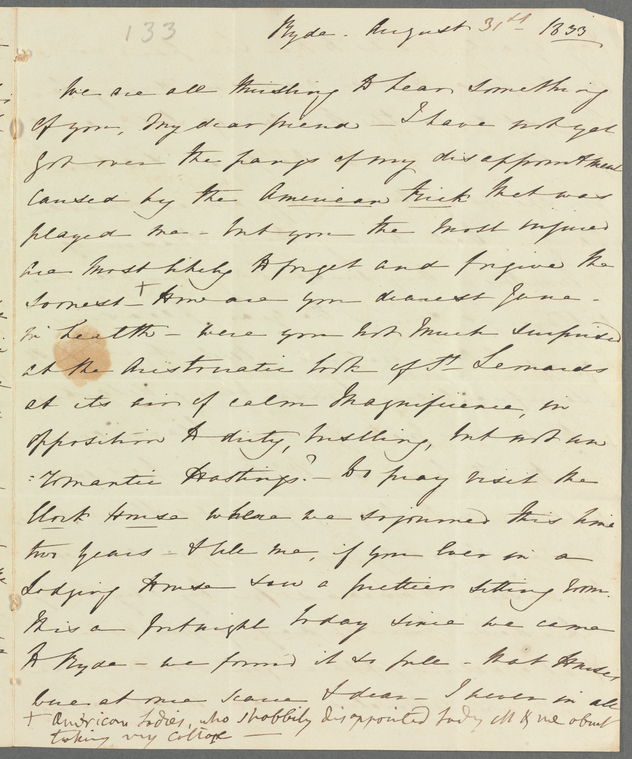 133
Ryde. August 31st 1833
We are all thirsting to hear something
of you, my dear friend - I have not yet
got over the pangs of my disappointment
caused by the American trick that was
played me - but you the most injured
are most likely to forget and forgive the
soonest + - How are you dearest Jane -
in health - were you not much surprised
at the Aristocratic look of St. Leonards
at its air of calm Magnificence, in
opposition to dirty, bustling, but not un
:romantic Hastings? - Do pray visit the
Clock House where we sojourned this time
two years - & tell me, if you ever in a
Lodging House saw a prettier sitting room.
This a fortnight today since we came
to Ryde - we found it so full - that Houses
were at once scarce & dear - I never in all
+ American Ladies, who shabbily disappointed Lady & me about
taking my cottage -